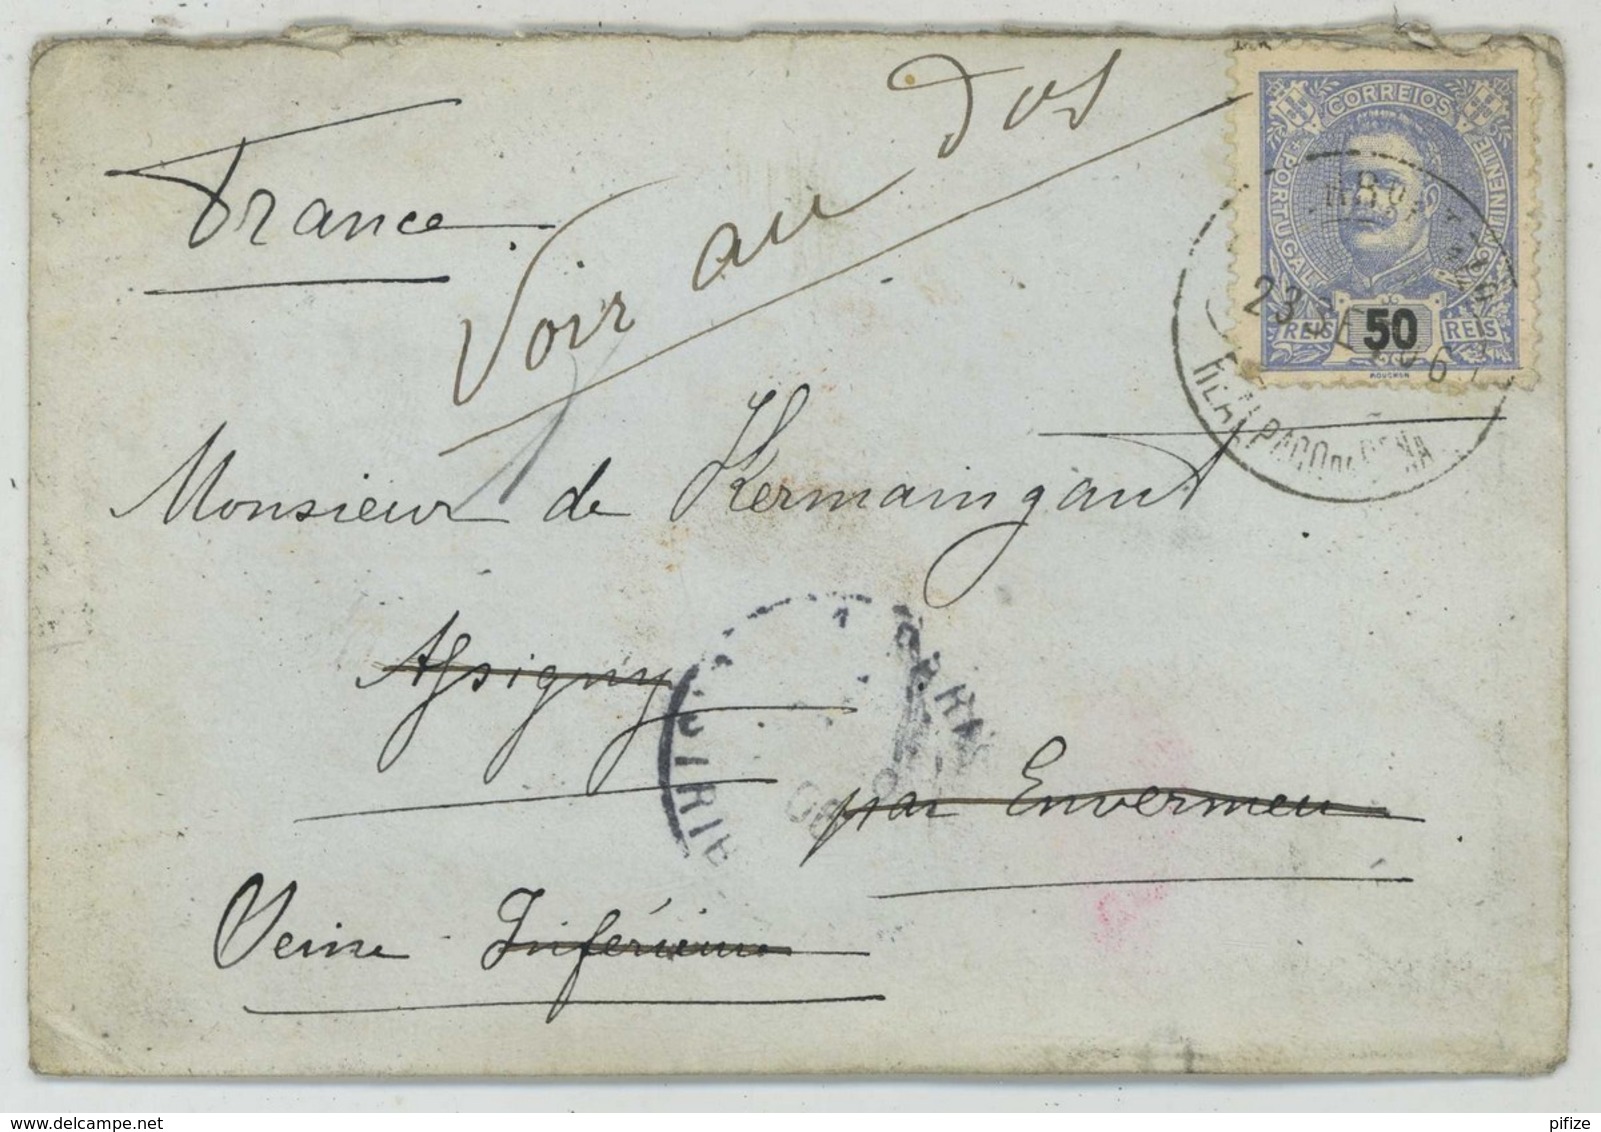 France
Voir au Dos
CORREIOS
PORTUGAL
CONTINENTE
REIS 50 REIS
MOUCHON
23 SE 06
REAL PAÇO DA PENA
Monsieur de Kermaingant
Assigny
par Envermeu
Seine Inférieure
pifize
delcampe.net